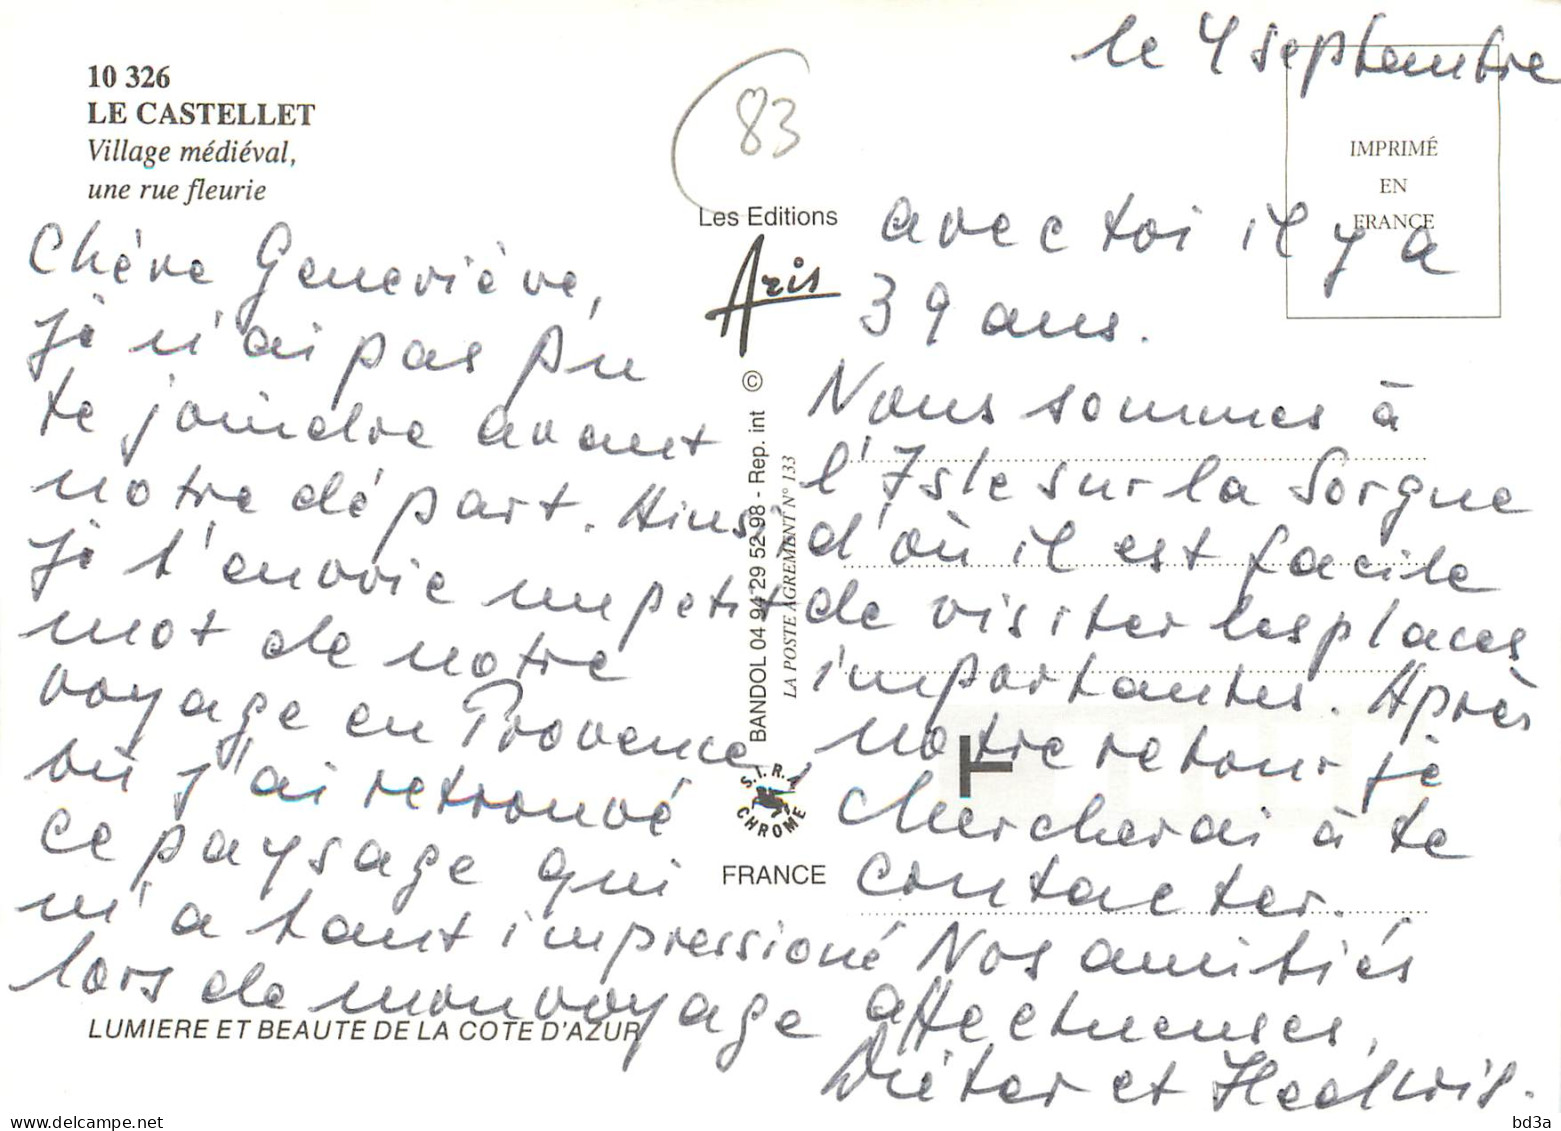 10 326
LE CASTELLET
Village médiéval,
une rue fleurie
83
le 4 septembre
IMPRIMÉ
EN
FRANCE
Chère Geneviève,
je n'ai pas pu
te joindre avant
notre départ. Ainsi,
je t'envoie un petit
mot de notre
voyage en Provence,
où j'ai retrouvé
ce paysage qui
m'a tant impressioné
lors de mon voyage
LUMIERE ET BEAUTE DE LA COTE D'AZUR
Les Editions
Aris
BANDOL 04 94 29 52 98 - Rep. int ©
LA POSTE AGREMENT N° 133
S.I.R.A
CHROME
FRANCE
avec toi il y a
39 ans.
Nous sommes à
l'Isle sur la Sorgue
d'où il est facile
de visiter les places
importantes. Après
notre retour je
chercherai à te
contacter.
Nos amitiés
affectueuses,
Dieter et
T
delcampe.net
bd3a